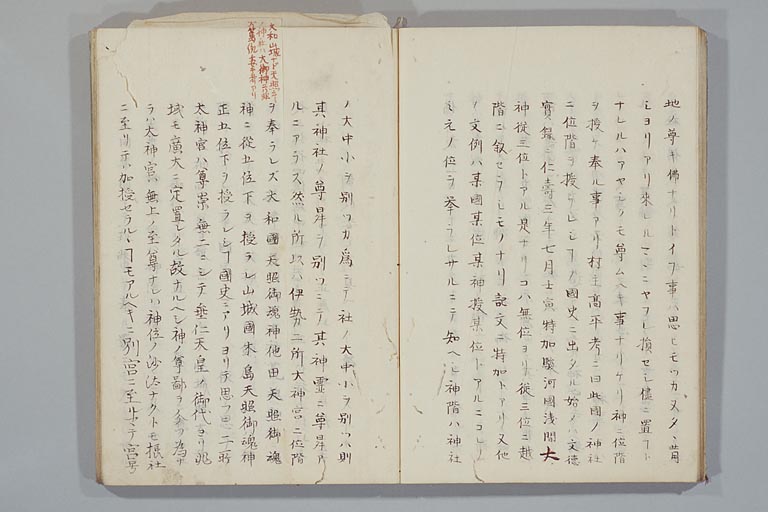 地ノ尊キ佛ナリトイフ事ハ思ヒモツカヌタヽ昔
ミヨリアリ來レルマヽニヤフレ損セシ儘ニ置テト
ナレルハアヤシクモ尊ムヘキ事ナリケリ神ニ位階
ヲ授ケ奉ル事アリ村主高平考ニ曰此國ノ神社
ニ位階ヲ授ケラレシコノ國史ニ出タル始ハ文徳
實録ニ仁壽三年七月壬寅特加駿河國淺間大
神從三位トアル是ナリコハ無位ヨリ從三位ニ越
階ニ叙セラレシモノナリ記文ニ特加トアリ又他
ノ文例ハ某國某位某神授某位トアルニコレハ
モノ位ヲ擧ラレサルニテ知ヘシ神階ハ神社
ノ大中小ヲ別ツカ爲ニテ社ノ大中小ヲ別ツハ則
其神社ノ尊卑ヲ別ツニテ其神霊ニ尊卑ア
ルニアラス然ル所以ハ伊勢二所大神宮ニ位階
ヲ奉ラレズ大和國天照御魂神他田天照御魂
神ニ從五位下ヲ授ラレ山城國木島天照御魂神
正五位下ヲ授ラレシコ國史ニアリヨリテ思フニ二所
太神宮ハ尊崇無二ニシテ垂仁天皇ノ御代ヨリ兆
域モ廣大ニ定置レタル故ナルヘシ神ノ尊鄙ヲ分ツ為ナ
ラハ太神宮ハ無上ノ至尊ナレハ神位ノ沙汰ナクトモ摂社
ニ至リテハ加授セラルヽコモアルヘキニ別宮ニ至ルマテ宮号
大和山城ナド天照ニテ
神社ハ大御神